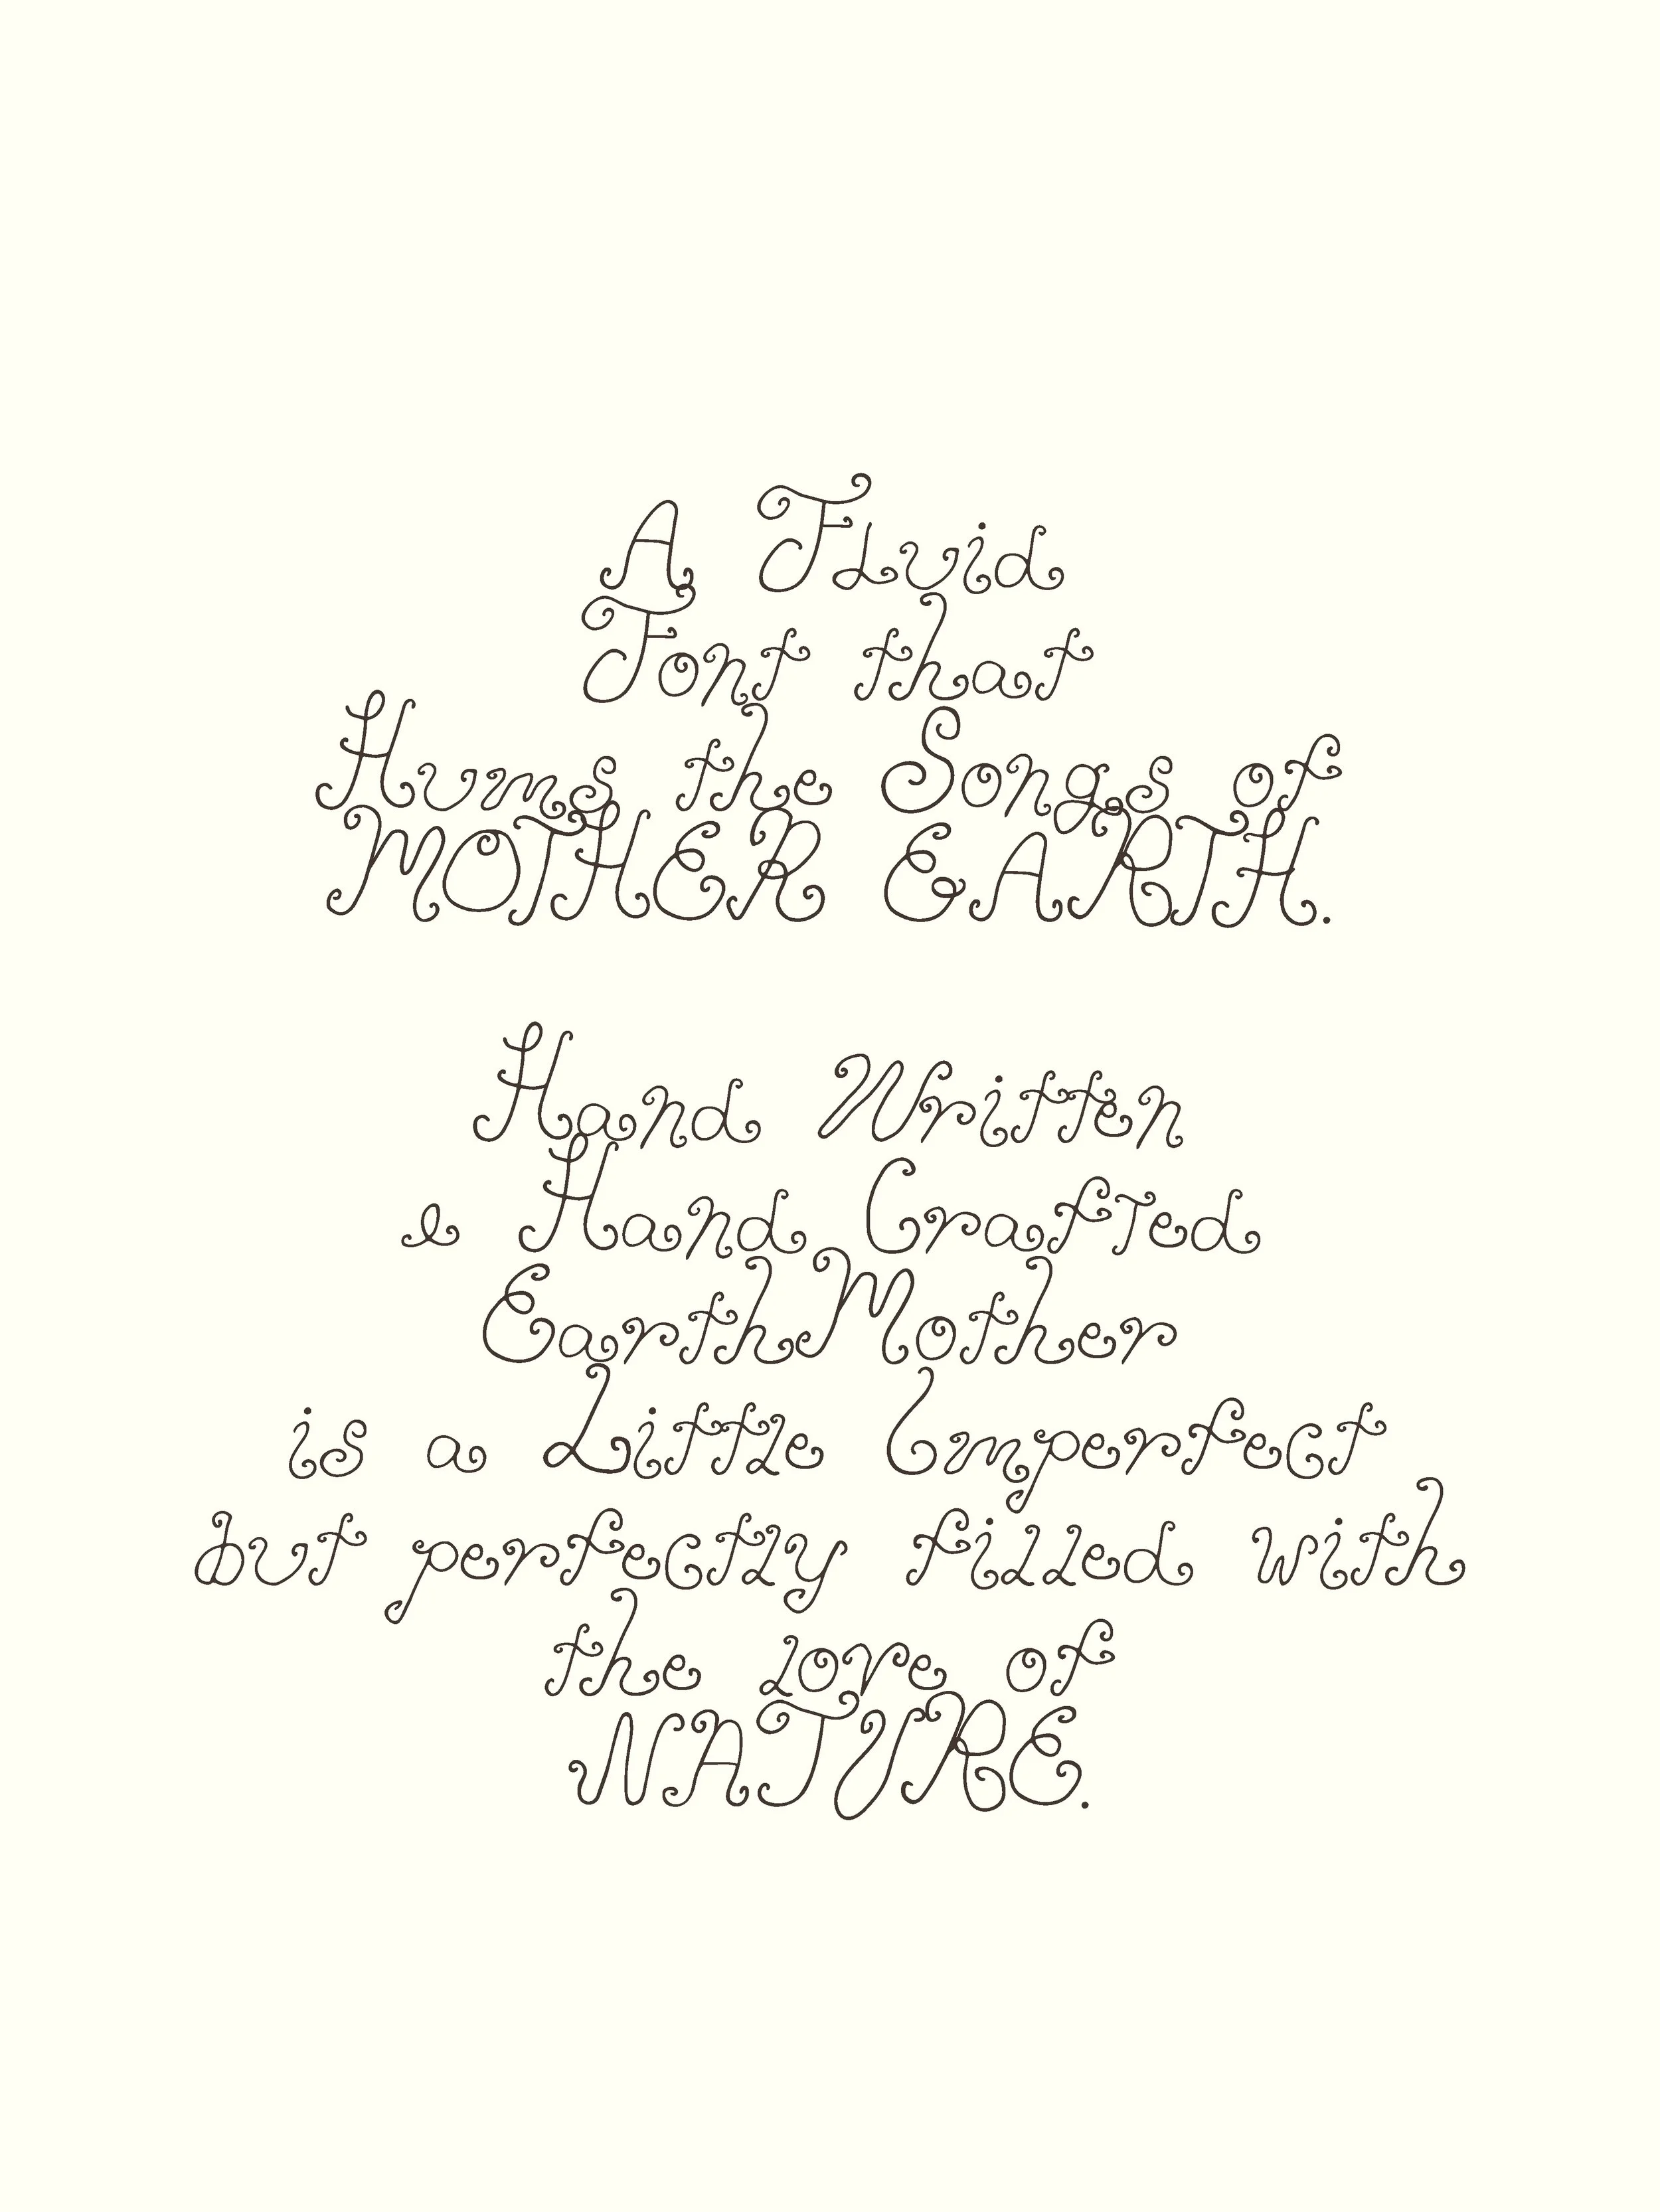 A Fluid
Font that
Hums the Songs of
MOTHER EARTH.
Hand Written
& Hand Crafted
EarthMother
is a Little Imperfect
but perfectly filled with
the love of
NATURE.